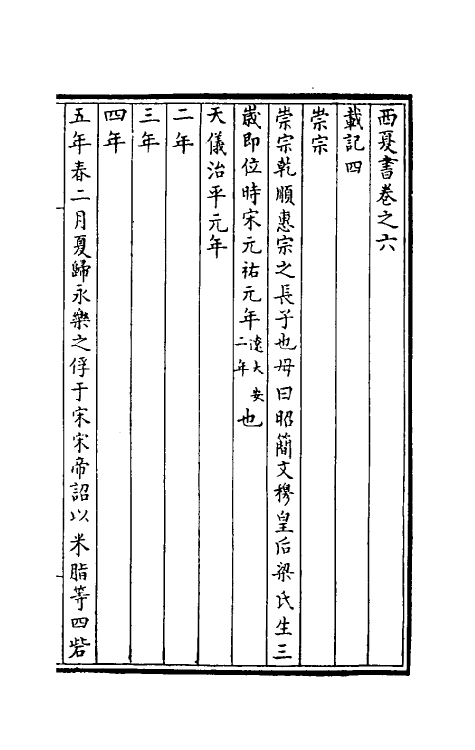 西夏書卷之六
載記四
崇宗
崇宗乾順惠宗之長子也母曰昭簡文穆皇后梁氏生三
歲即位時宋元祐元年遼大安二年也
天儀治平元年
二年
三年
四年
五年春二月夏歸永樂之俘于宋宋帝詔以米脂等四砦